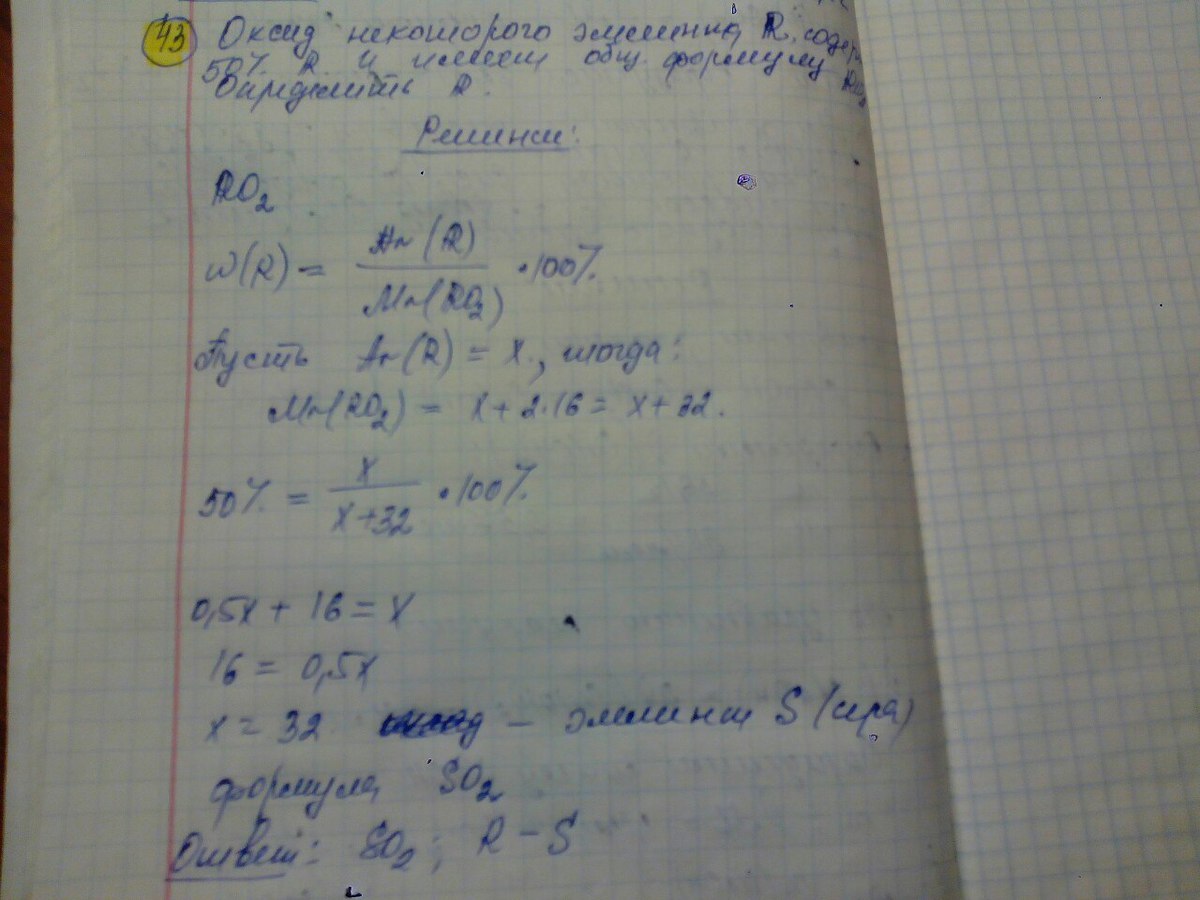 43 Оксид некоторого элемента R, содер
50% R и имеет общ. формулу RO2
Определить R.
Решение:
RO2
w(R) = Ar(R) / Mr(RO2) · 100%.
Пусть Ar(R) = x, тогда:
Mr(RO2) = x + 2·16 = x + 32.
50% = x / x+32 · 100%.
0,5x + 16 = x
16 = 0,5x
x = 32 – элемент S (сера)
формула SO2
Ответ: SO2; R – S